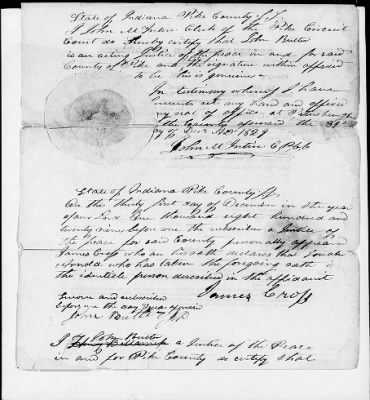 State of Indiana Pike County SS
I John M Intire Clerk of the Pike Circuit
Court do hereby certify that John Butler
is an acting Justice of the peace in and for said
County of Pike and the signature within affixed
to be his genuine
In testimony whereof I have
hereunto set my hand and official
seal of office at Petersburgh
the County aforesaid the 31
day of Decr AD 1829
John M Intire C P C C
State of Indiana Pike County SS
On the thirty first day of December in the year
of our Lord One thousand eight hundred and
twenty nine before me the subscriber a Justice of
the peace for said County personally appeared
James Cross who on his oath declares that
who has taken the foregoing oath is
the identicle person described in the affidavit
James Cross
Sworn and subscribed
before me the day & year aforesaid
John Butler J P
John Butler
I a Justice of the Peace
in and for Pike County do certify that